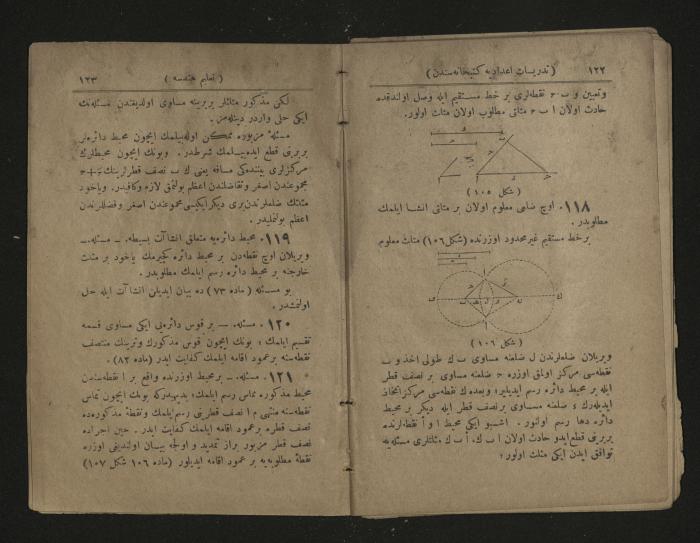 ١٢٢ ( تدريسات اعداديه كتبخانه‌سندن )
وتعيين و ب ح نقطه‌لرى بر خط مستقيم ايله وصل اولندقده
حادث اولان ا ب ح مثلثى مطلوب اولان مثلث اولور.
( شكل ١٠٥ )
١١٨. اوچ ضلعى معلوم اولان بر مثلثى انشا ايلمك
مطلوبدر.
برخط مستقيم غيرمحدود اوزرنده (شكل ١٠٦) مثلث معلوم
( شكل ١٠٦ )
ويريلان ضلعلرندن ل ضلعنه مساوى ب ك طولى اخذ و ب
نقطه‌سى مركز اولمق اوزره ح ضلعنه مساوى بر نصف قطر
ايله بر محيط دائره رسم ايديلير؛ وبعده ك نقطه‌سى مركز اتخاذ
ايديله‌رك ضلعنه مساوى برنصف قطر ايله ديكر بر محيط
دائره دها رسم اولنور. اشبو ايكى محيط ا و أ نقطه‌لرنده
بربرينى قطع ايدو حادث اولان ا ب ك، أ ب ك مثلثلرى مسئله‌يه
توافق ايدن ايكى مثلث اولور؛
( تعليم هندسه ) ١٢٣
لكن مذكور مثلثلر بربرينه مساوى اولديغندن مسئله‌نك
ايكى حلى واردر دينله‌مز.
مسئلۀ مزبوره ممكن اوله‌بيلمك ايچون محيط دائره‌لر
بربرينى قطع ايده‌بيلمك شرطدر. وبونك ايچون محيطلرك
مركزلرى بيننده‌كى مسافه يعنى ك ب نصف قطرلرينك
مجموعندن اصغر وتفاضلندن اعظم بولنمق لازم وكافيدر. وياخود
مثلثك ضلعلرندن برى ديكر ايكيسى مجموعندن اصغر وفضللرندن
اعظم بولنمليدر.
١١٩. محيط دائره‌يه متعلق انشاآت بسيطه. ــ مسئله. ــ
ويريلان اوچ نقطه‌دن بر محيط دائره كچيرمك ياخود بر مثلث
خارجنه بر محيط دائره رسم ايلمك مطلوبدر.
بو مسئله (ماده ٧٣) ده بيان ايديلن انشاآت ايله حل
اولنمشدر.
١٢٠. مسئله. ــ بر قوس دائره‌يى ايكى مساوى قسمه
تقسيم ايلمك؛ بونك ايچون قوس مذكورك وترينك منتصف
نقطه‌سنه برعمود اقامه ايلمك كفايت ايدر (ماده ٨٢).
١٢١. مسئله. ــ برمحيط اوزرنده واقع بر ا نقطه‌سندن
محيط مذكوره مماس رسم ايلمك؛ بديهيدركه بونك ايچون تماس
نقطه‌سنه منتهى م ا نصف قطرينى رسم ايلمك ونقطۀ مذكوره‌ده
نصف قطره برعمود اقامه ايلمك كفايت ايدر. حين اجراده
نصف قطر مزبور براز تمديد و اولجه بيان اولنديغى اوزره
نقطۀ مطلوبه‌يه بر عمود اقامه ايديلور (ماده ١٠٦ شكل ١٠٧)